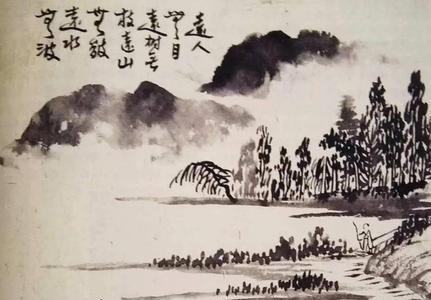 遠人
無目
遠樹无
枝遠山
無皴
遠水
無波